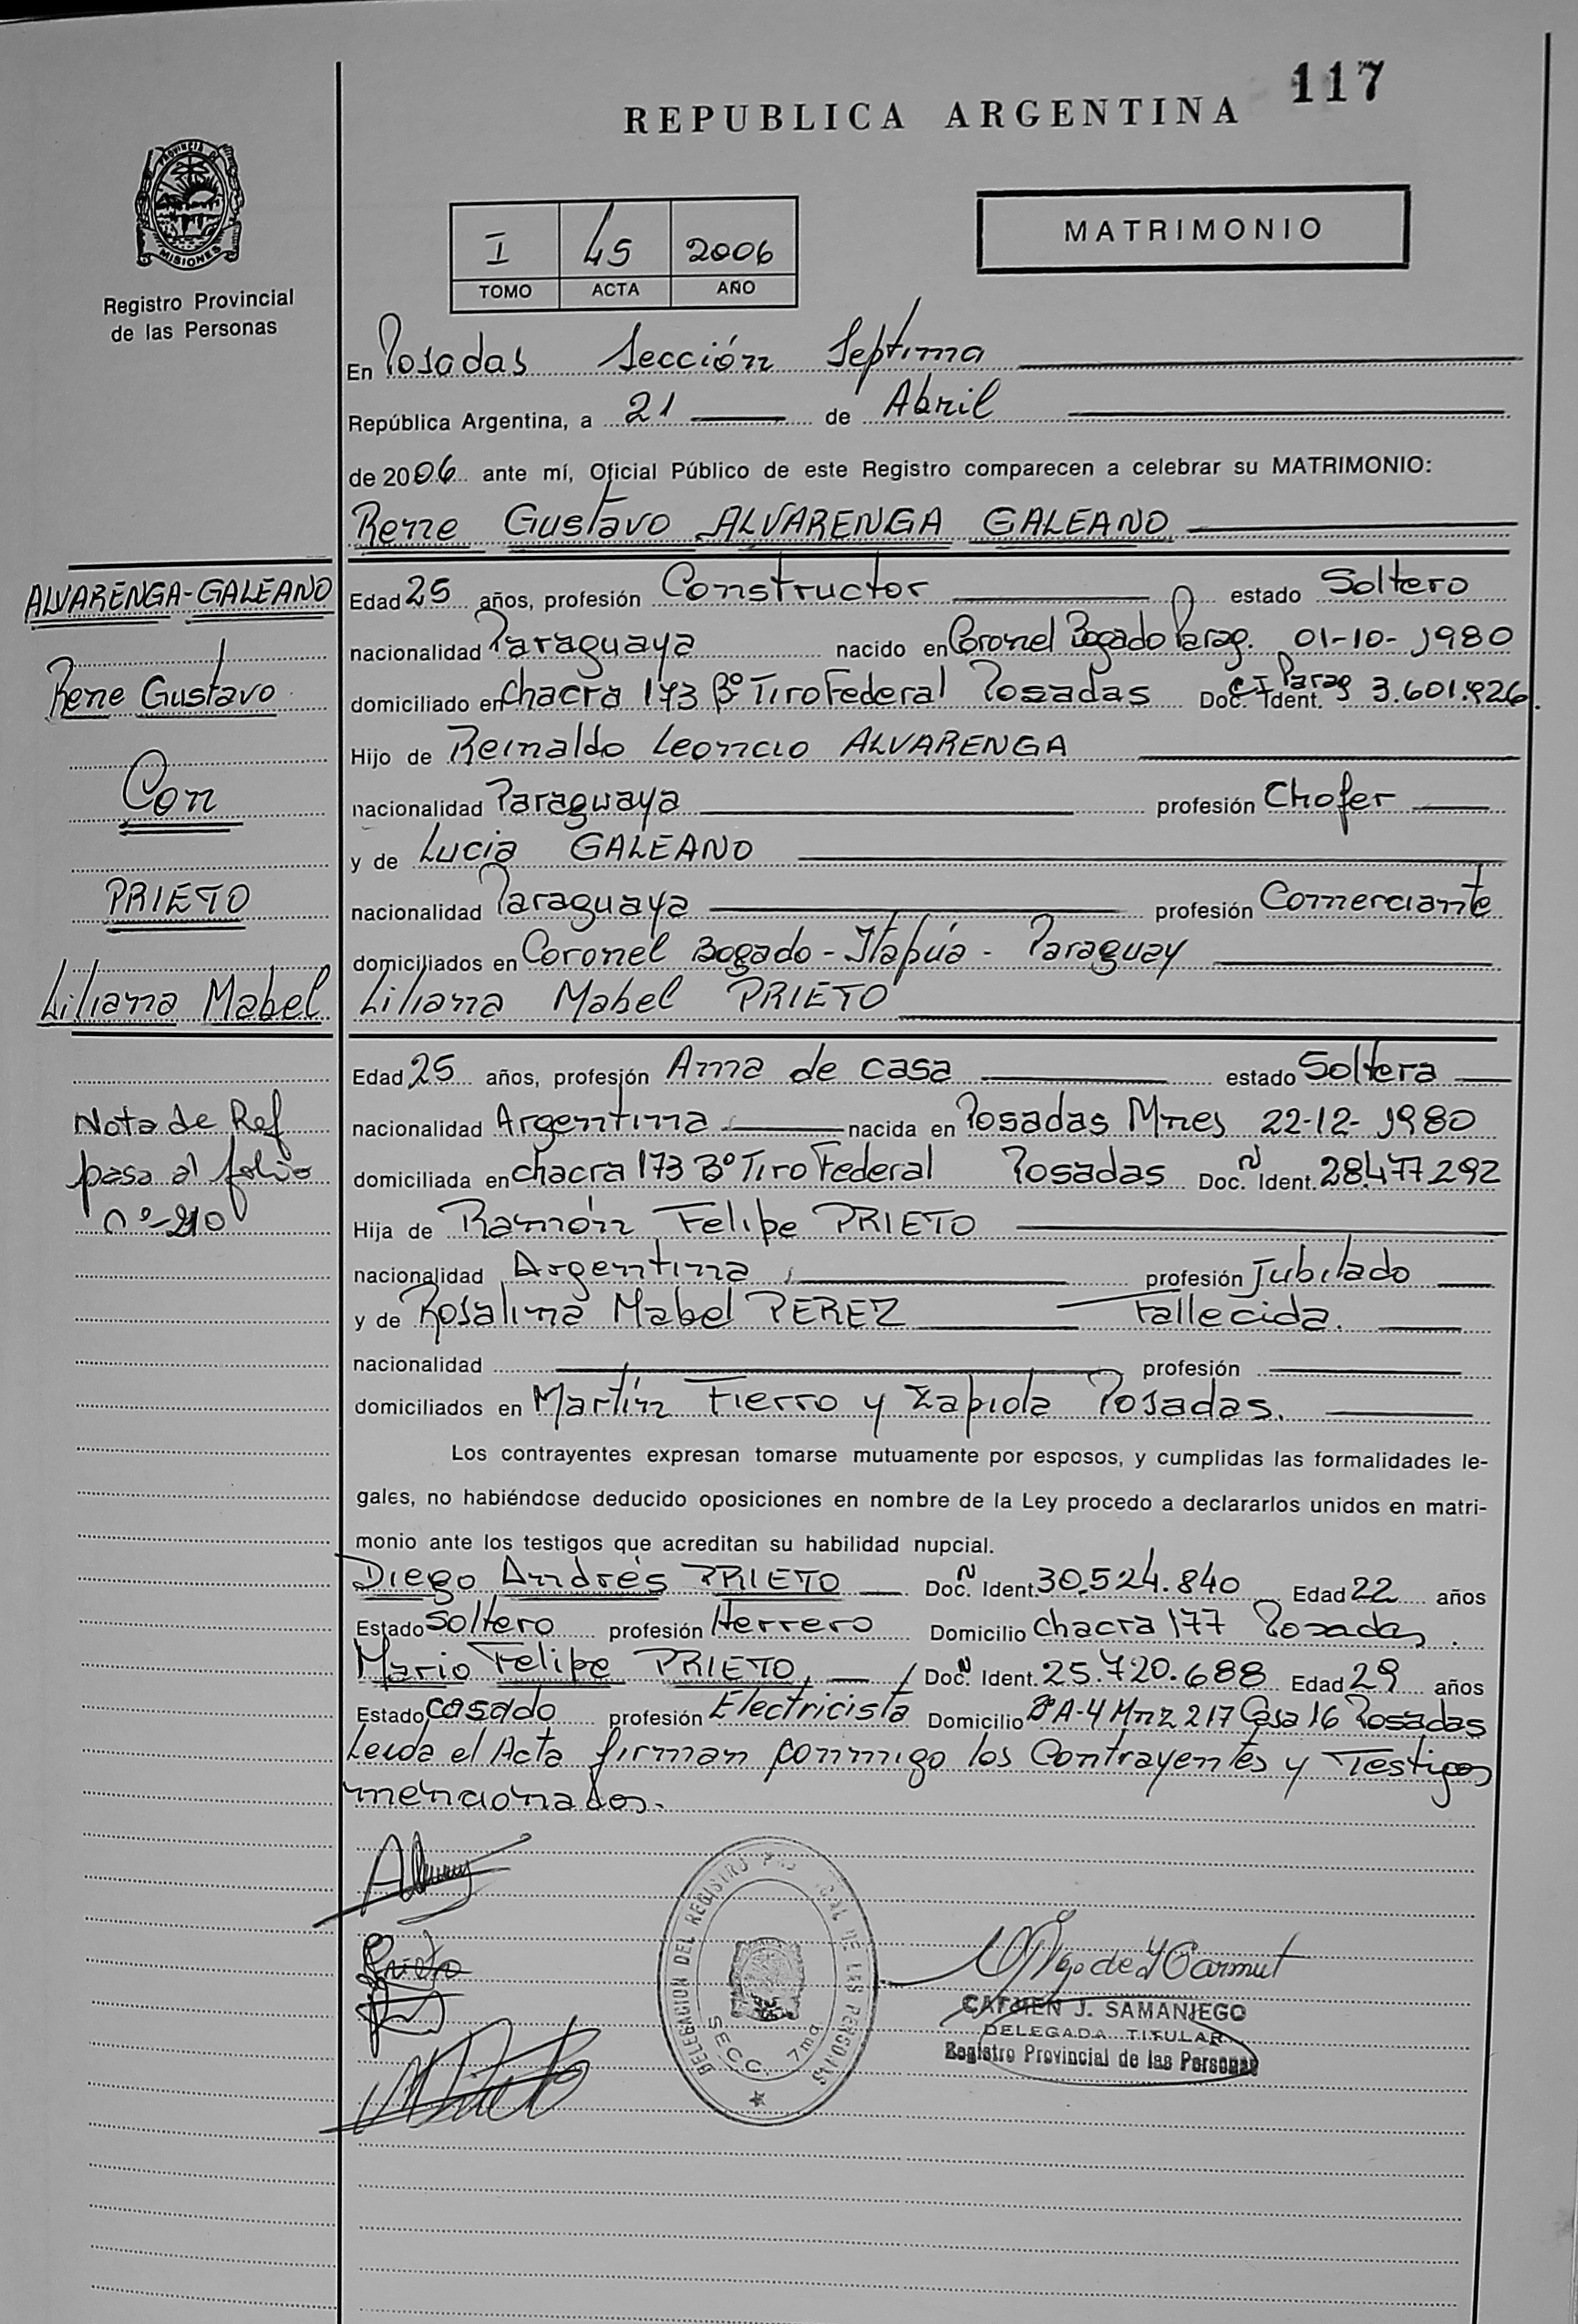 117
REPUBLICA ARGENTINA
PROVINCIA DE
MISIONES
Registro Provincial
de las Personas
I 45 2006
TOMO ACTA AÑO
MATRIMONIO
En Posadas Sección Septima
República Argentina, a 21 de Abril
de 2006 ante mí, Oficial Público de este Registro comparecen a celebrar su MATRIMONIO:
Rene Gustavo ALVARENGA GALEANO
ALVARENGA-GALEANO
Rene Gustavo
Con
PRIETO
Liliana Mabel
Nota de Ref
pasa al folio
nº-210
Edad 25 años, profesión Constructor estado Soltero
nacionalidad Paraguaya nacido en Coronel Bogado Parag. 01-10-1980
domiciliado en chacra 173 Bº Tiro Federal Posadas Doc. Ident. CI Parag 3.601.926.
Hijo de Reinaldo Leoncio ALVARENGA
nacionalidad Paraguaya profesión Chofer
y de Lucia GALEANO
nacionalidad Paraguaya profesión Comerciante
domiciliados en Coronel Bogado - Itapúa - Paraguay
Liliana Mabel PRIETO
Edad 25 años, profesión Ama de casa estado Soltera
nacionalidad Argentina nacida en Posadas Mnes 22-12-1980
domiciliada en chacra 173 Bº Tiro Federal Posadas Doc. N Ident. 28.477.292
Hija de Ramón Felipe PRIETO
nacionalidad Argentina profesión Jubilado
y de Rosalina Mabel PEREZ Fallecida.
nacionalidad profesión
domiciliados en Martín Fierro y Zapiola Posadas.
Los contrayentes expresan tomarse mutuamente por esposos, y cumplidas las formalidades le-
gales, no habiéndose deducido oposiciones en nombre de la Ley procedo a declararlos unidos en matri-
monio ante los testigos que acreditan su habilidad nupcial.
Diego Andrés PRIETO Doc. N Ident. 30.524.840 Edad 22 años
Estado soltero profesión Herrero Domicilio chacra 177 Posadas.
Mario Felipe PRIETO, Doc. N Ident. 25.720.688 Edad 29 años
Estado casado profesión Electricista Domicilio Bº A-4 Mnz 217 Casa 16 Posadas
Leida el Acta firman conmigo los Contrayentes y Testigos
mencionados.
Prieto
DELEGACION DEL REGISTRO DE LAS PERSONAS
SECC. 7ma
CARMEN J. SAMANIEGO
DELEGADA TITULAR
Registro Provincial de las Personas